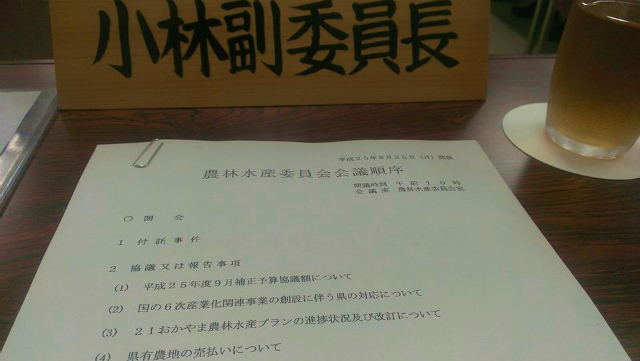 小林副委員長
平成25年8月26日(月) 開催
農林水産委員会会議順序
開議時刻 午前10時
会議室 農林水産委員会室
○ 開会
1 付託事件
2 協議又は報告事項
(1) 平成25年度9月補正予算協議額について
(2) 国の6次産業化関連事業の創設に伴う県の対応について
(3) 21おかやま農林水産プランの進捗状況及び改訂について
(4) 県有農地の売払いについて